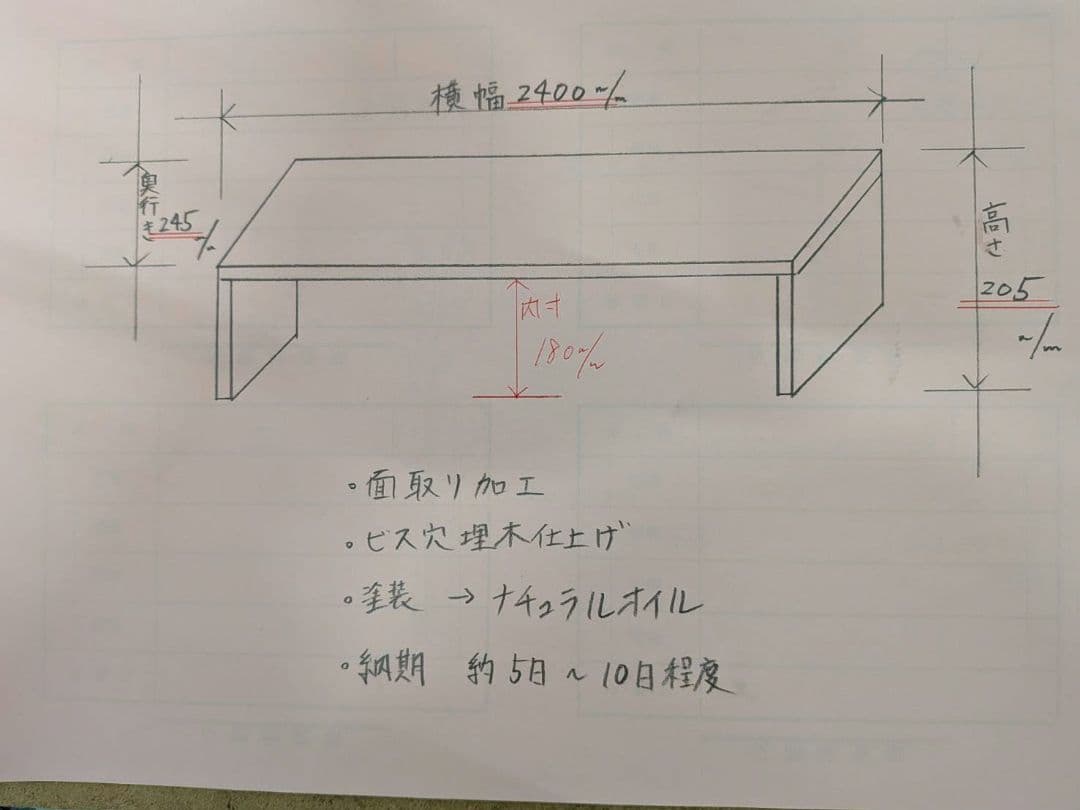 横幅 2400m/m
奥行き 245m/m
高さ 205m/m
内寸 180m/m
。面取り加工
。ビス穴埋木仕上げ
。塗装 → ナチュラルオイル
。納期 約5日～10日程度